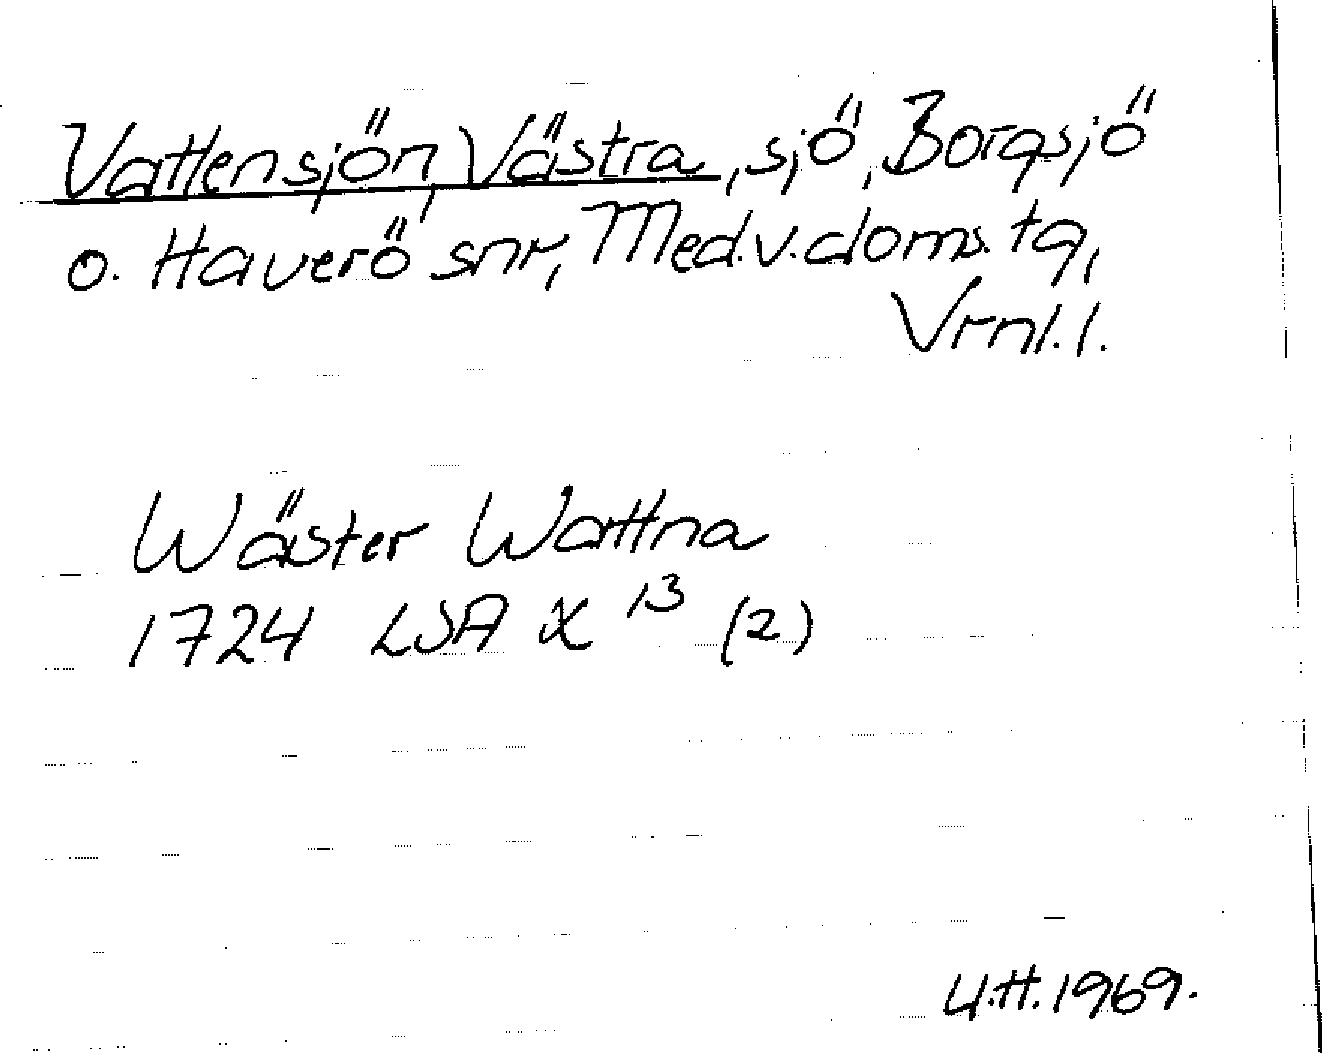 Vattensjön, Västra, sjö, Borgsjö
o. Haverö snr, Med.v.doms.tg,
Vrnl.l.
Wäster Wattna
1724 LSA X 13 (2)
U.H. 1969.